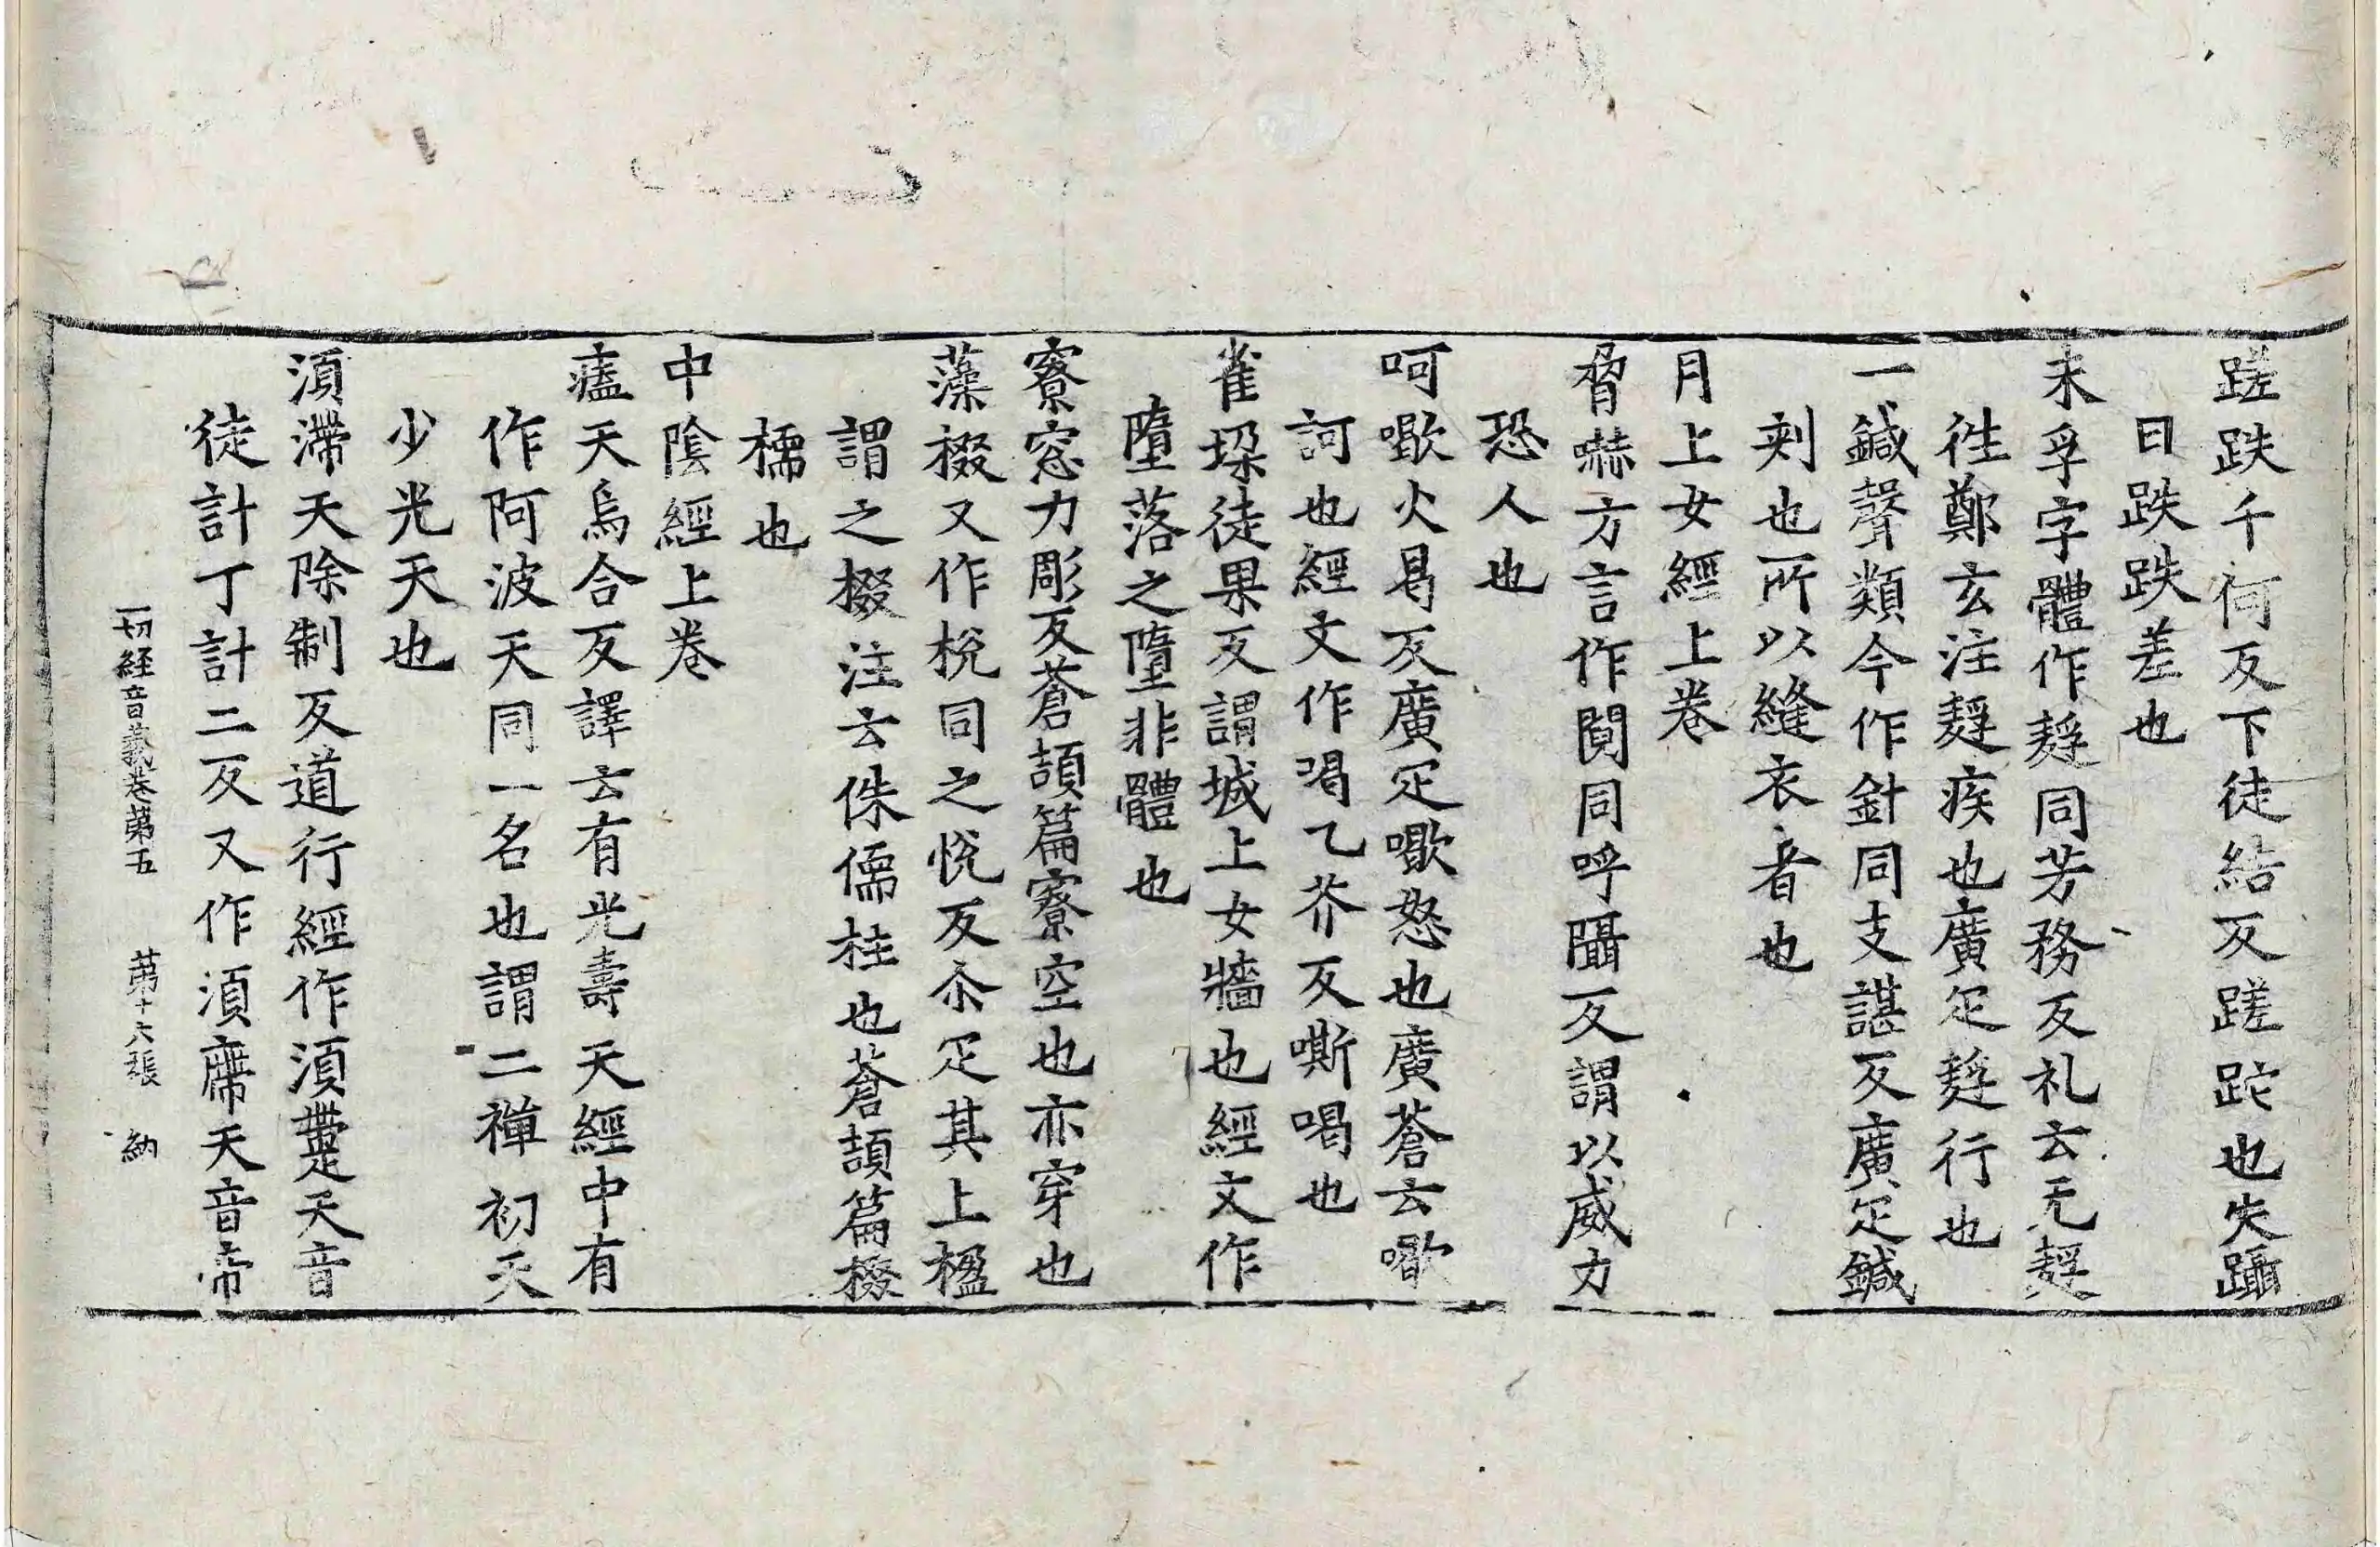 蹉跌千何反下徒結反蹉跎也失躡
曰跌跌差也
未孚字體作䞯同芳務反礼云无䞯
徃鄭玄注䞯疾也廣疋䞯行也
一鍼聲類今作針同支諶反廣疋鍼
刺也所以縫衣者也
月上女經上卷
脅嚇方言作閱同呼隔反謂以威力
恐人也
呵歠火曷反廣疋歠怒也廣蒼云歠
訶也經文作喝乙芥反嘶喝也
雀垜徒果反謂城上女牆也經文作
墮落之墮非體也
寮窓力彫反蒼頡篇寮空也亦穿也
藻棳又作梲同之悅反尒疋其上楹
謂之棳注云侏儒柱也蒼頡篇棳
檽也
中陰經上卷
㿃天烏合反譯云有光壽天經中有
作阿波天同一名也謂二禪初天
少光天也
須滯天除制反道行經作須䟢天音
徒計丁計二反又作須廗天音帝
一切経音義卷苐五　苐十六張　納